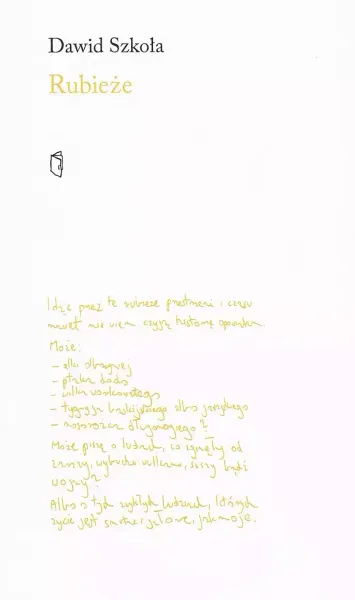 Dawid Szkoła
Rubieże
Idąc przez te rubieże przestrzeni i czasu
nawet nie wiem czyją historię
Może:
– alki olbrzymiej
– ptaka dodo
– wilka workowatego
– tygrysa balijskiego albo jawajskiego
– nosorożca
Może piszę o ludziach, co zginęli od
zarazy, wybuchu wulkanu, suszy bądź
wojny?
Albo o tych zwykłych ludziach, których
życie jest smutne i jałowe, jak moje.